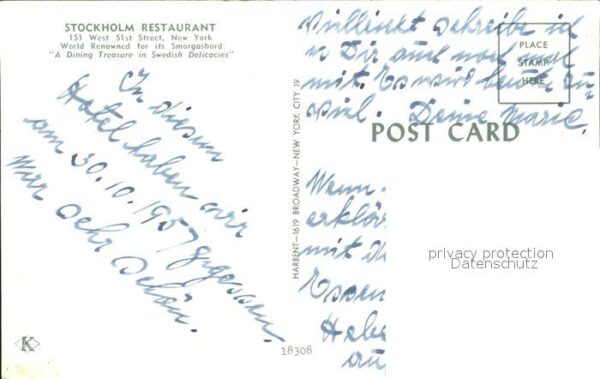 STOCKHOLM RESTAURANT
151 West 51st Street, New York
World Renowned for its Smorgasbord
"A Dining Treasure in Swedish Delicacies"
In diesem
Hotel haben wir
am 30.10.1957 gegessen.
War sehr schön.
K
HARBENT—1619 BROADWAY—NEW YORK CITY 19
18308
Vielleicht schreibe ich
Dir auch noch mal
mit. Es wird heute zu
viel. Deine Marie.
PLACE
STAMP
HERE
POST CARD
Wenn
erklär
mit di
Essen
Habe
au
privacy protection
Datenschutz